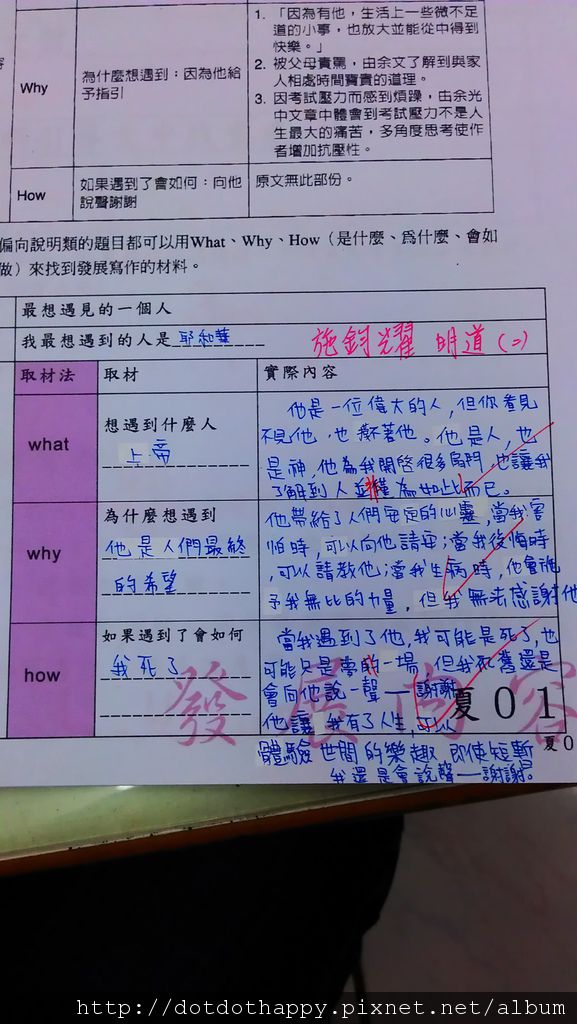 Why
為什麼想遇到：因為他給
予指引
1. 「因為有他，生活上一些微不足
道的小事，也放大並能從中得到
快樂。」
2. 被父母責罵，由余文了解到與家
人相處時間寶貴的道理。
3. 因考試壓力而感到煩躁，由余光
中文章中體會到考試壓力不是人
生最大的痛苦，多角度思考使作
者增加抗壓性。
How
如果遇到了會如何：向他
說聲謝謝
原文無此部份。
偏向說明類的題目都可以用What、Why、How（是什麼、為什麼、會如
做）來找到發展寫作的材料。
最想遇見的一個人
我最想遇到的人是耶和華
施鈞耀 明道(二)
取材法
取材
實際內容
what
想遇到什麼人
上帝
他是一位偉大的人，但你看見
不見他，也摸不著他。他是人，也
是神，他為我開啓很多扇門，也讓我
了解到人並僅為如此而已。
why
為什麼想遇到
他是人們最終
的希望
他帶給了人們安定的心靈，當我害
怕時，可以向他請安；當我後悔時
，可以請教他；當我生病時，他會施
予我無比的力量，但我無法感謝他
how
如果遇到了會如何
我死了
當我遇到了他，我可能是死了，也
可能只是夢的一場，但我依舊還是
會向他說一聲——謝謝
他讓 我有了人生，可以
體驗世間的樂趣 即使短暫
我還是會說聲——謝謝。
發展內容
夏01
夏0
http://dotdothappy.pixnet.net/album